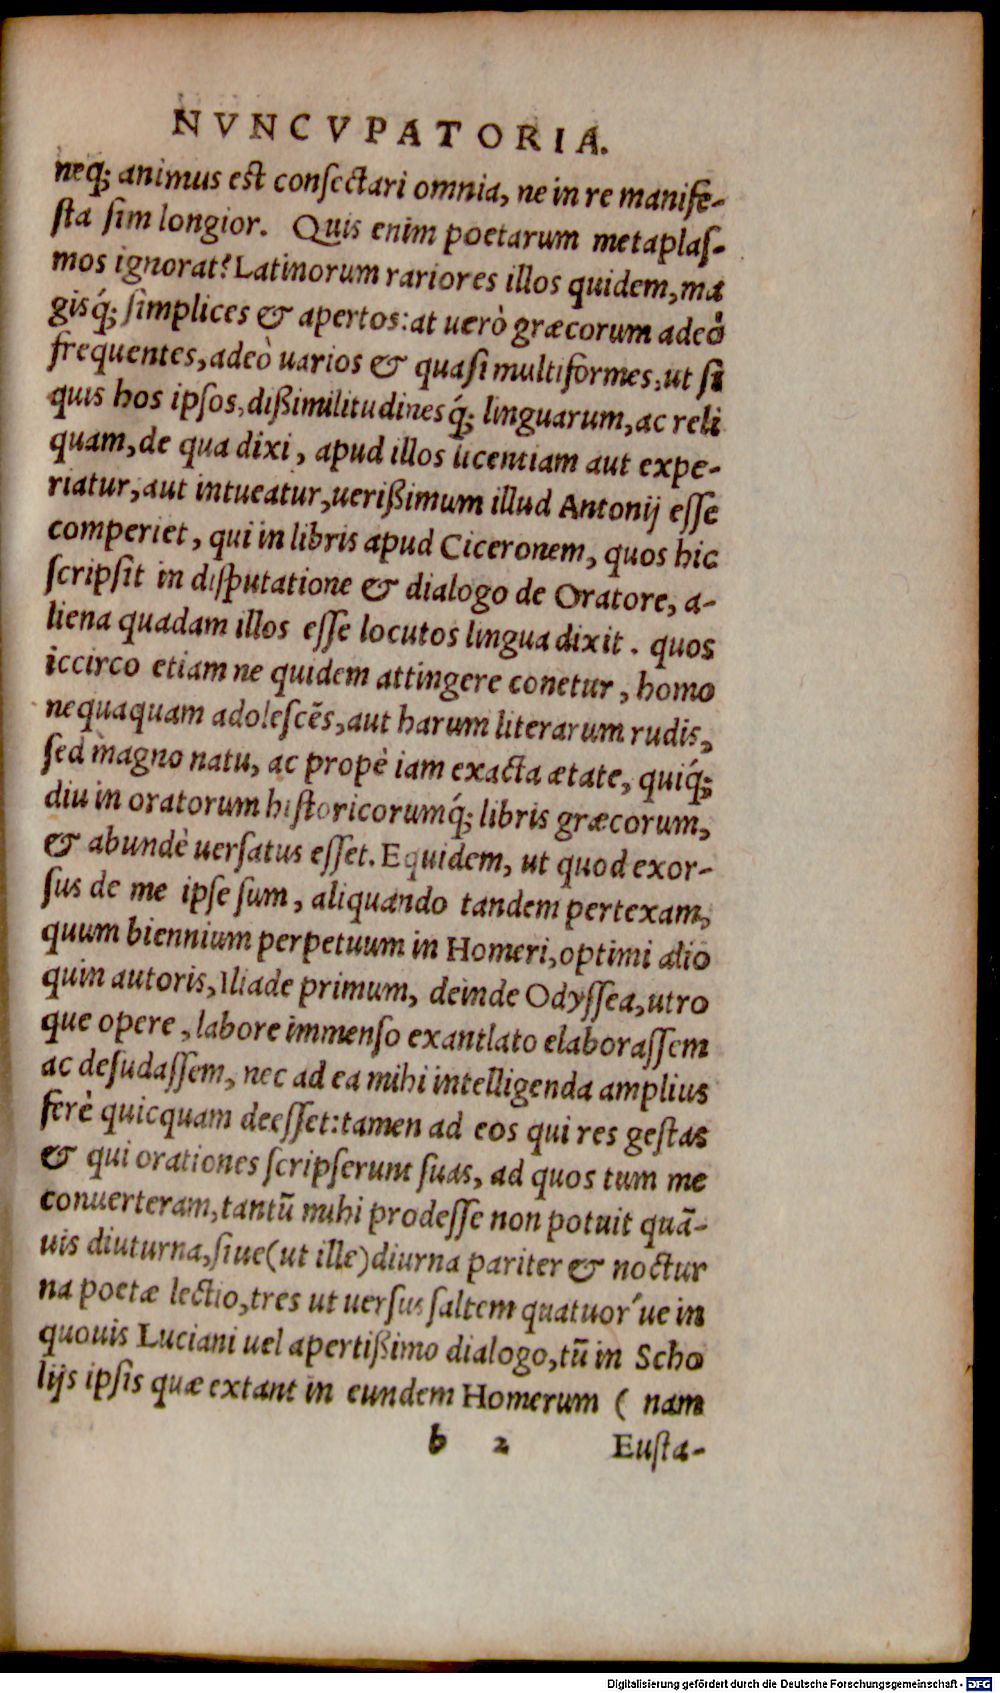 NVNCVPATORIA.
neq; animus est consectari omnia, ne in re manife-
sta sim longior. Quis enim poetarum metaplas-
mos ignorat? Latinorum rariores illos quidem, ma
gisq́; simplices & apertos: at uerò græcorum adeò
frequentes, adeò uarios & quasi multiformes, ut si
quis hos ipsos, dißimilitudinesq́; linguarum, ac reli
quam, de qua dixi, apud illos licentiam aut expe-
riatur, aut intueatur, uerißimum illud Antonij esse
comperiet, qui in libris apud Ciceronem, quos hic
scripsit in disputatione & dialogo de Oratore, a-
liena quadam illos esse locutos lingua dixit. quos
iccirco etiam ne quidem attingere conetur, homo
nequaquam adolescẽs, aut harum literarum rudis,
sed magno natu, ac propè iam exacta ætate, quiq́;
diu in oratorum historicorumq́; libris græcorum,
& abundè uersatus esset. Equidem, ut quod exor-
sus de me ipse sum, aliquando tandem pertexam,
quum biennium perpetuum in Homeri, optimi alio
quin autoris, Iliade primum, deinde Odyssea, utro
que opere, labore immenso exantlato elaborassem
ac desudassem, nec ad ea mihi intelligenda amplius
ferè quicquam deesset: tamen ad eos qui res gestas
& qui orationes scripserunt suas, ad quos tum me
conuerteram, tantũ mihi prodesse non potuit quã-
uis diuturna, siue (ut ille) diurna pariter & noctur
na poetæ lectio, tres ut uersus saltem quatuor'ue in
quouis Luciani uel apertißimo dialogo, tũ in Scho
lijs ipsis quæ extant in eundem Homerum ( nam
b 2 Eusta-
Digitalisierung gefördert durch die Deutsche Forschungsgemeinschaft - DFG